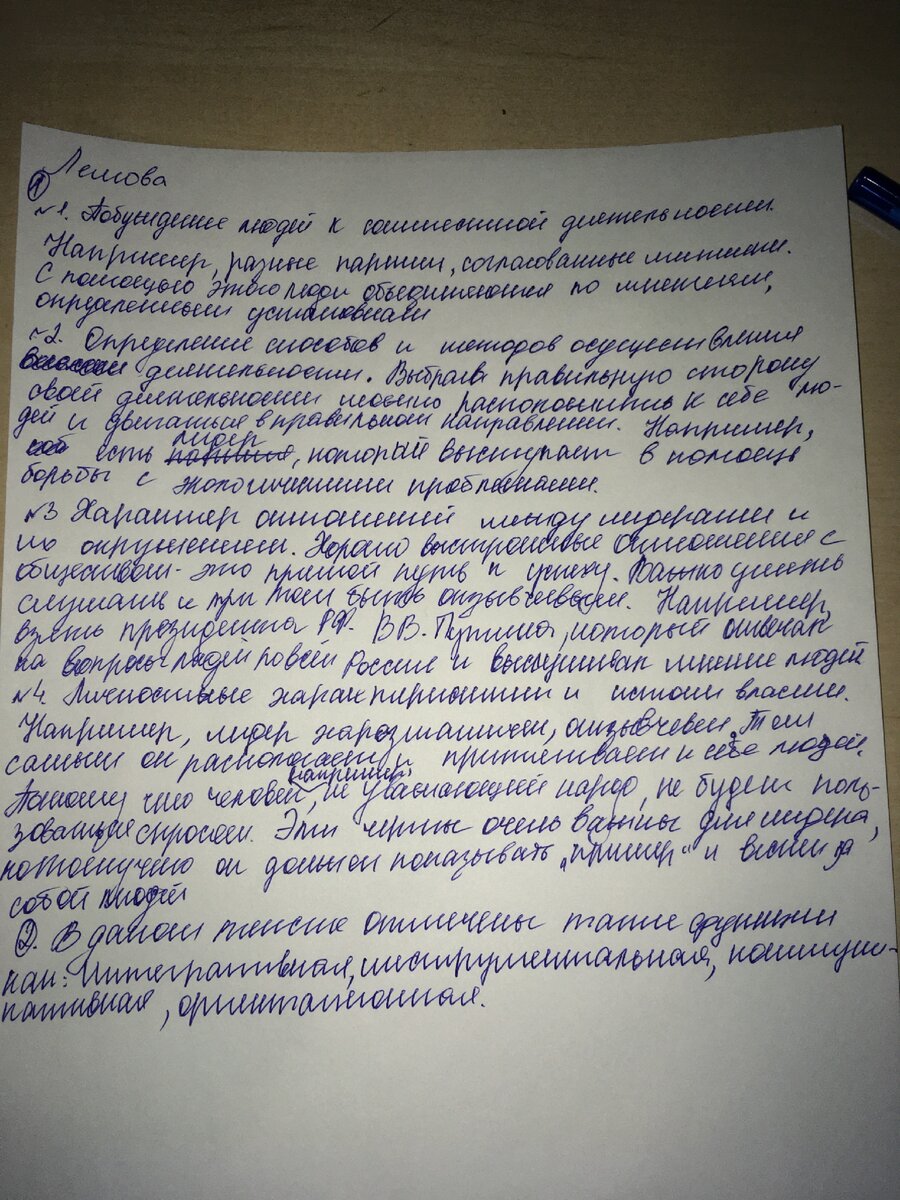 Лемова
①
№1. Побуждение людей к совместной деятельности.
Например, разные партии, согласованные митинги.
С помощью этого люди объединяются по мнениям,
определенным установкам
№2. Определение способов и методов осуществления
деятельности. Выбрав правильную сторону
своей деятельности можно расположить к себе лю-
дей и двигаться в правильном направлении. Например,
есть лидер, который выступает в помощь
борьбы с экологическими проблемами.
№3 Характер отношений между лидерами и
их окружением. Хорошо выстроенные отношения с
обществом - это прямой путь к успеху. Важно уметь
слушать и при том быть отзывчевым. Например,
взять президента РФ. В.В. Путина, который отвечал
на вопросы людей по всей России и выслушивал мнение людей
№4. Личностные характеристики и истоки власти.
Например, лидер харозматичен, отзывчевен. Тем
самым он располагает и притягивает к себе людей.
Потому что человек, например, не уважающий народ, не будет поль-
зоваться спросом. Эти черты очень важны для лидера,
потомучто он должен показывать „пример“ и вести за
собой людей
②. В даном тексте отмечены такие функции
как: Интегративная, инструментальная, коммуни-
кативная, ориентационная.